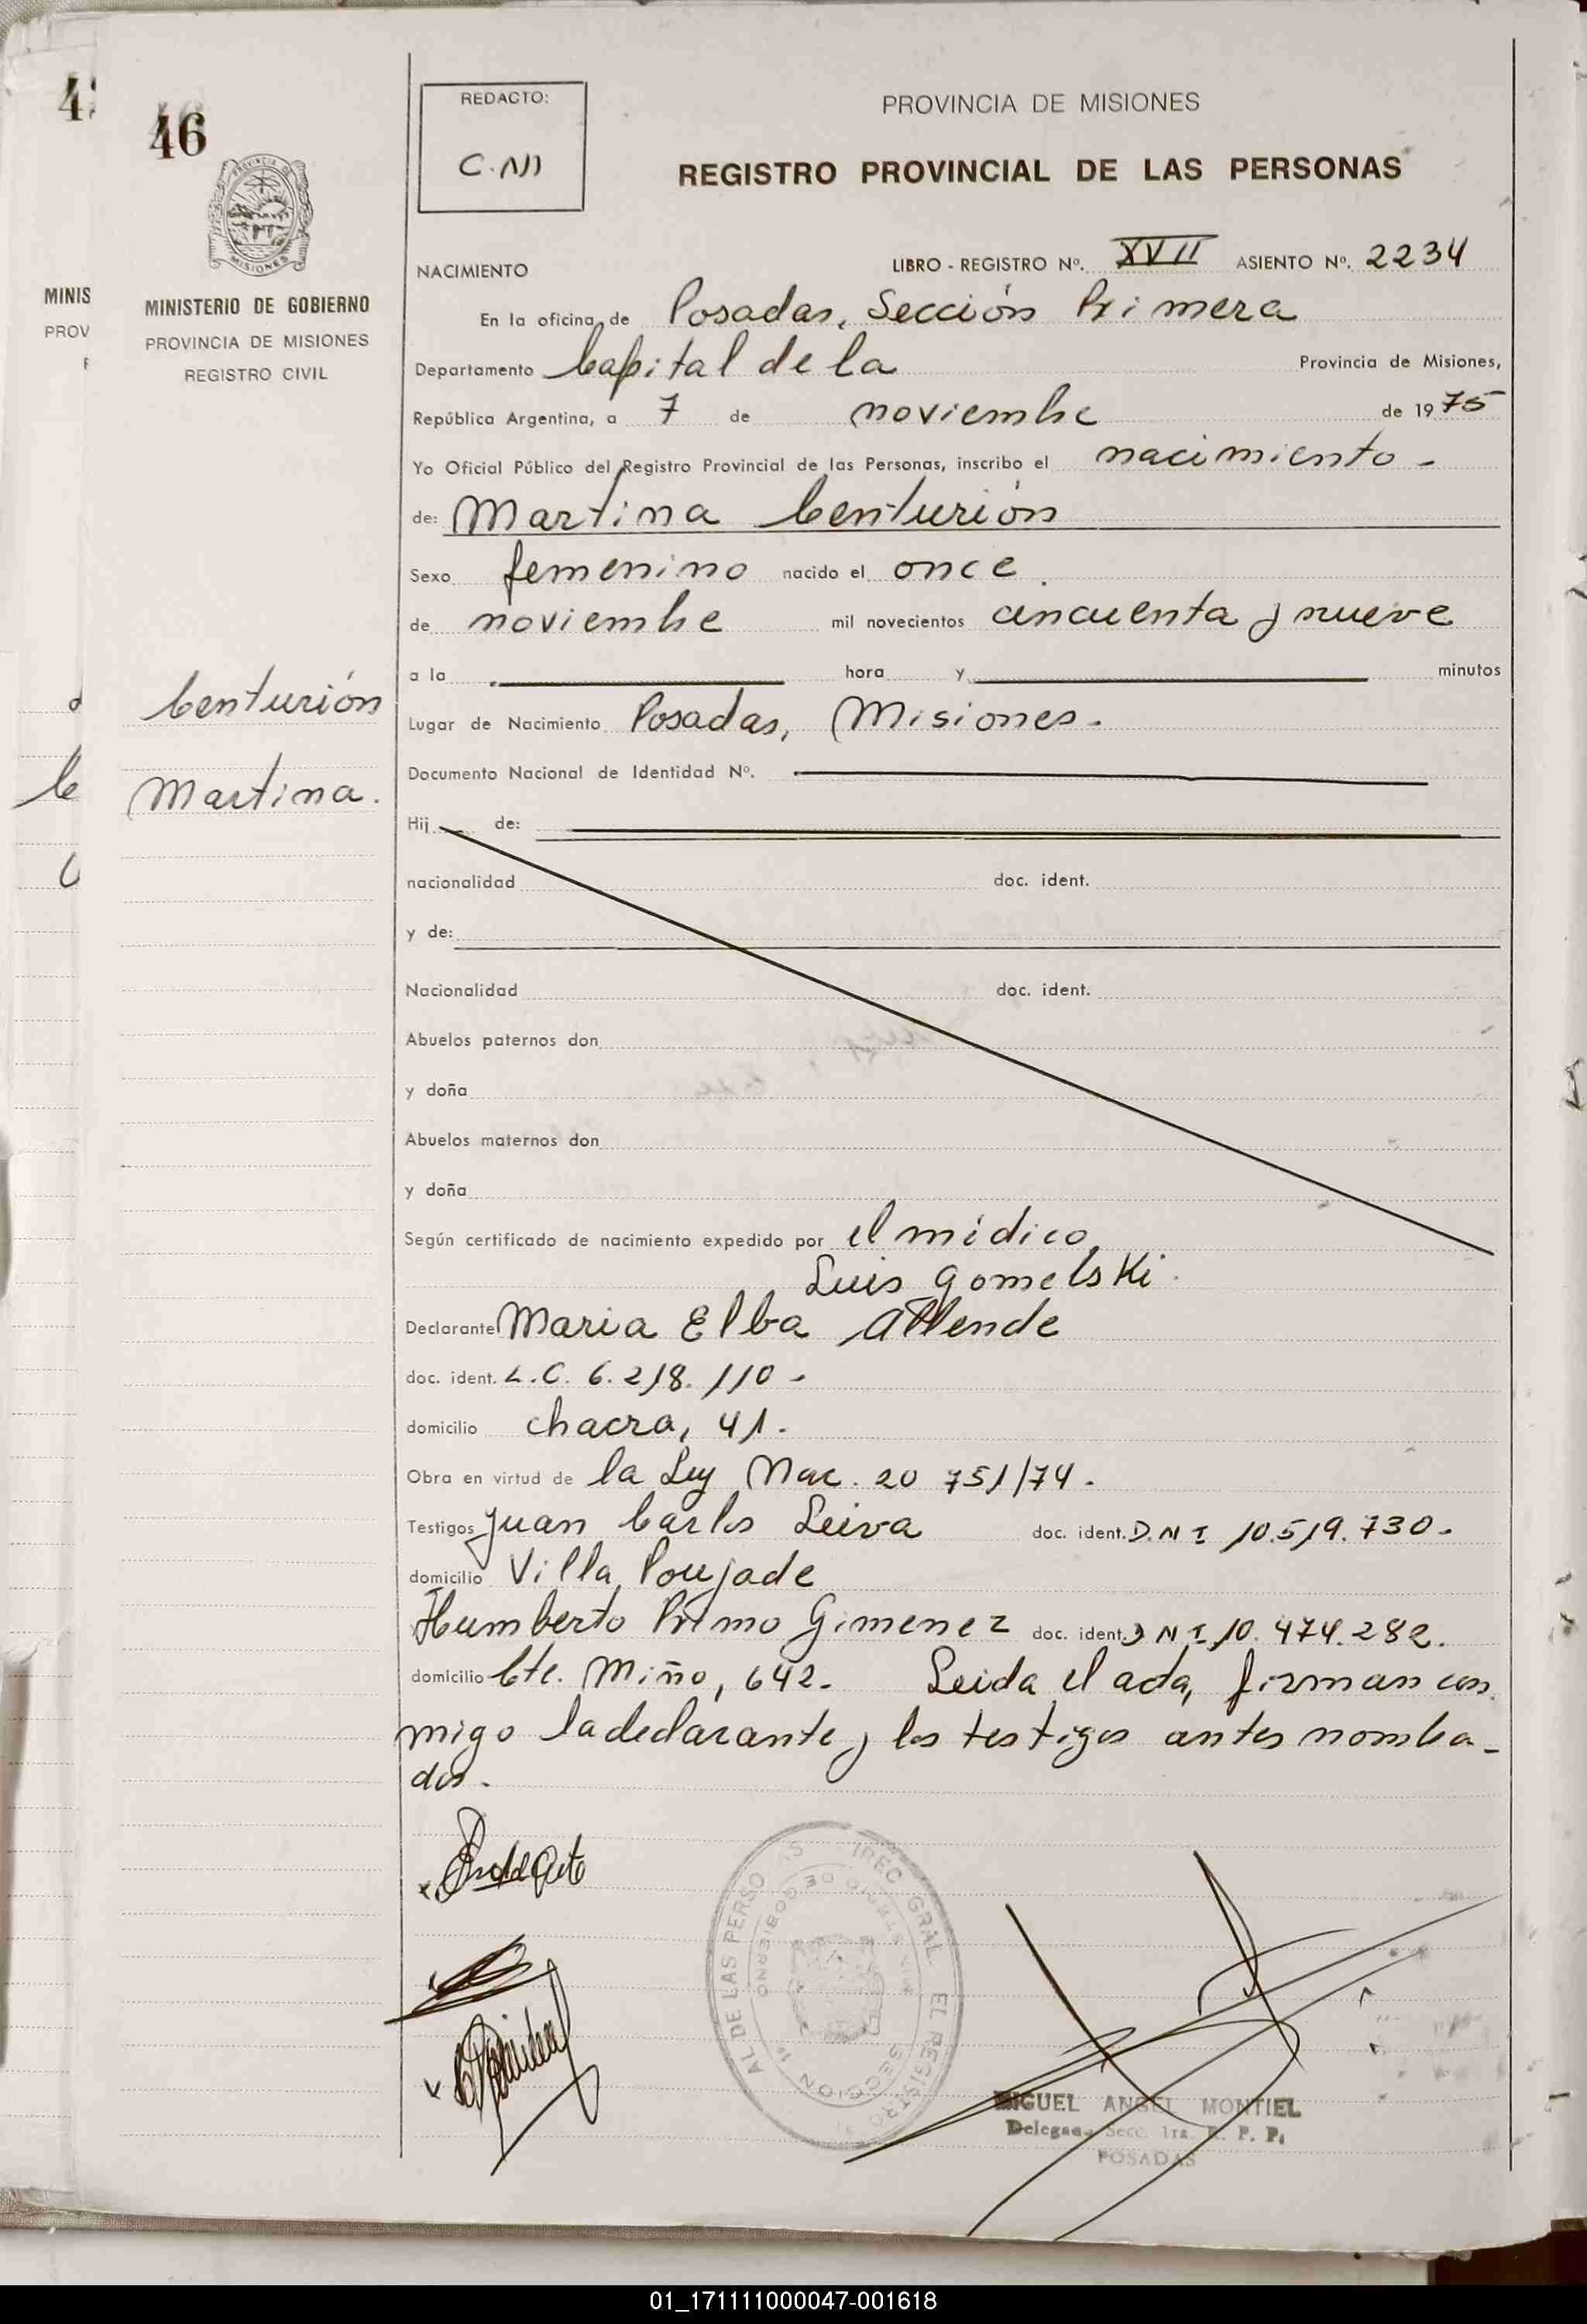 46
REDACTO:
PROVINCIA DE MISIONES
REGISTRO PROVINCIAL DE LAS PERSONAS
NACIMIENTO
LIBRO - REGISTRO Nº. XVII ASIENTO Nº. 2234
MINISTERIO DE GOBIERNO
PROVINCIA DE MISIONES
REGISTRO CIVIL
En la oficina de Posadas, Sección Primera
Departamento Capital de la Provincia de Misiones,
República Argentina, a 7 de noviembre de 1975
Yo Oficial Público del Registro Provincial de las Personas, inscribo el nacimiento -
de: Martina Centurión
Sexo femenino nacido el once
de noviembre mil novecientos cincuenta y nueve
a la hora y minutos
Centurión
Martina.
Lugar de Nacimiento Posadas, Misiones.
Documento Nacional de Identidad Nº.
Hij de:
nacionalidad doc. ident.
y de:
Nacionalidad doc. ident.
Abuelos paternos don
y doña
Abuelos maternos don
y doña
Según certificado de nacimiento expedido por el médico,
Luis Gomelski.
Declarante Maria Elba Allende
doc. ident. L.C. 6.218.110 -
domicilio chacra, 41.
Obra en virtud de la Ley Nac. 20 751/74.
Testigos Juan Carlos Leiva doc. ident. D.N I 10.519.730.
domicilio Villa Poujade
Humberto Primo Gimenez doc. ident. D N I 10.474.282.
domicilio Cte. Miño, 642. Leida el acta, firman con
migo la declarante y los testigos antes nombra-
dos.
MIGUEL ANGEL MONTIEL
Secc. 1ra. R. P. P.
POSADAS
01_171111000047-001618